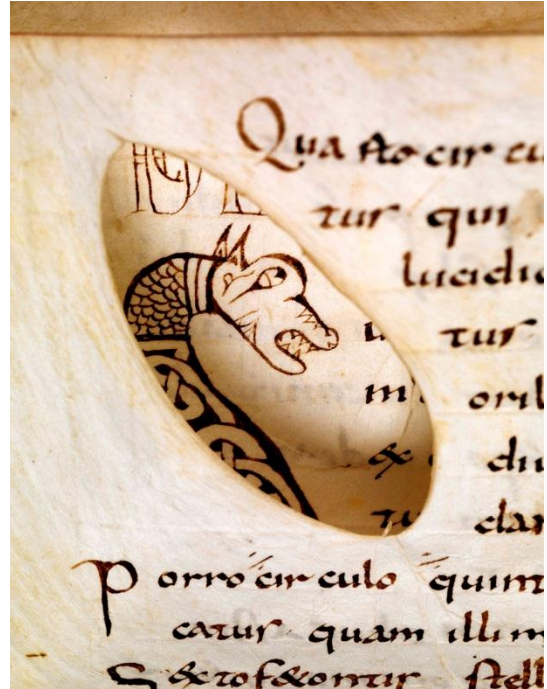 Quarto cir cu
tur qui
lucidio
u tur
m oril
& du
tu clar
Porro cir culo quint
catur quam illi m
stell